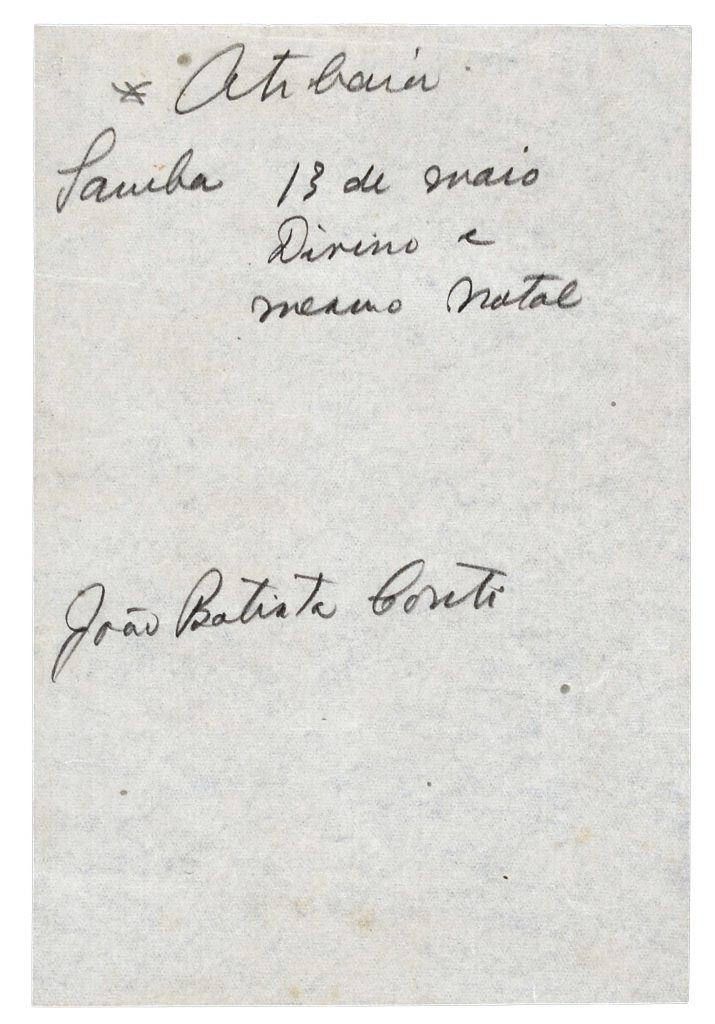 * Atibaia
Samba 13 de maio
Divino e
mesmo Natal
João Batista Conti